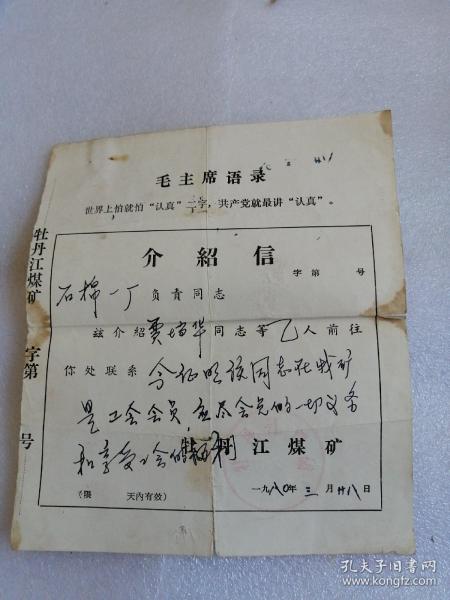 毛主席语录
世界上怕就怕“认真”二字，共产党就最讲“认真”。
牡丹江煤矿 字第 号
介紹信
字第 号
石棉一厂负责同志
兹介紹贾培华同志等乙人前往
你处联系 今证明该同志在我矿
是工会会员，应尽会员的一切义务
和享受工会的福利
牡丹江煤矿
（限 天内有效）
一九八〇年三月廿八日
孔夫子旧书网
www.kongfz.com